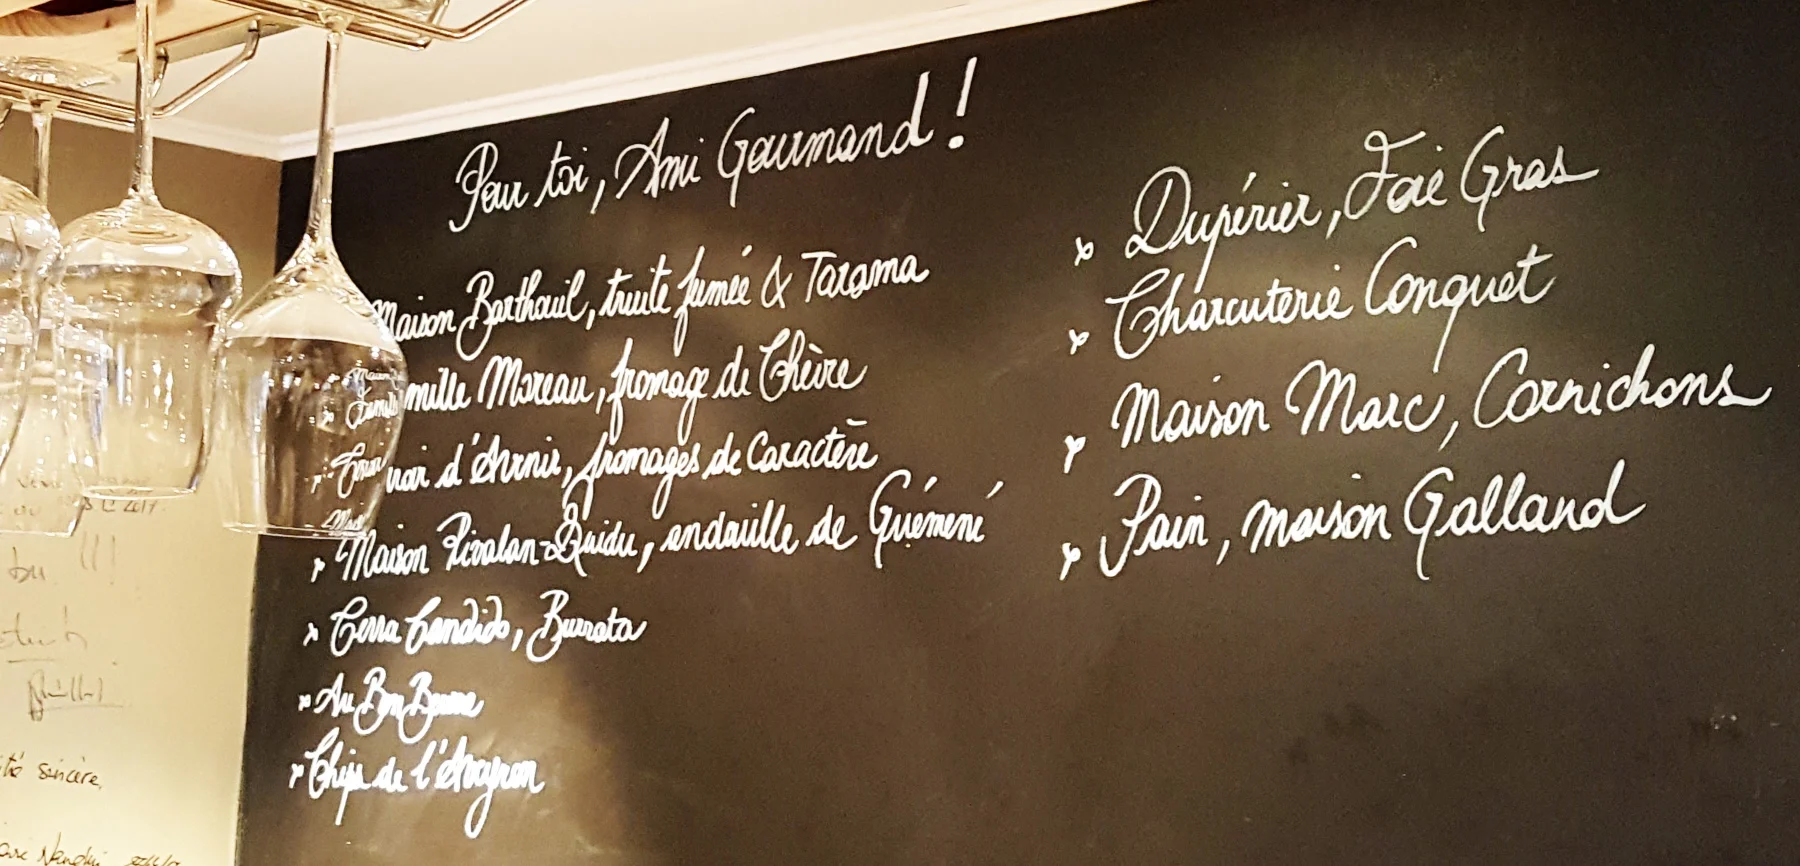 Pour toi, Ami Gourmand !
Maison Barthouil, truite fumée & Tarama
mille Moreau, fromage de Chèvre
noir d'Avrnir, fromages de Caractère
Maison Rivalan-Quidu, andouille de Guémené
Terra Candido, Burrata
Au Bon Beurre
Chips de l'Aveyron
Dupérier, Foie Gras
Charcuterie Conquet
Maison Marc, Cornichons
Pain, maison Galland
sincère,